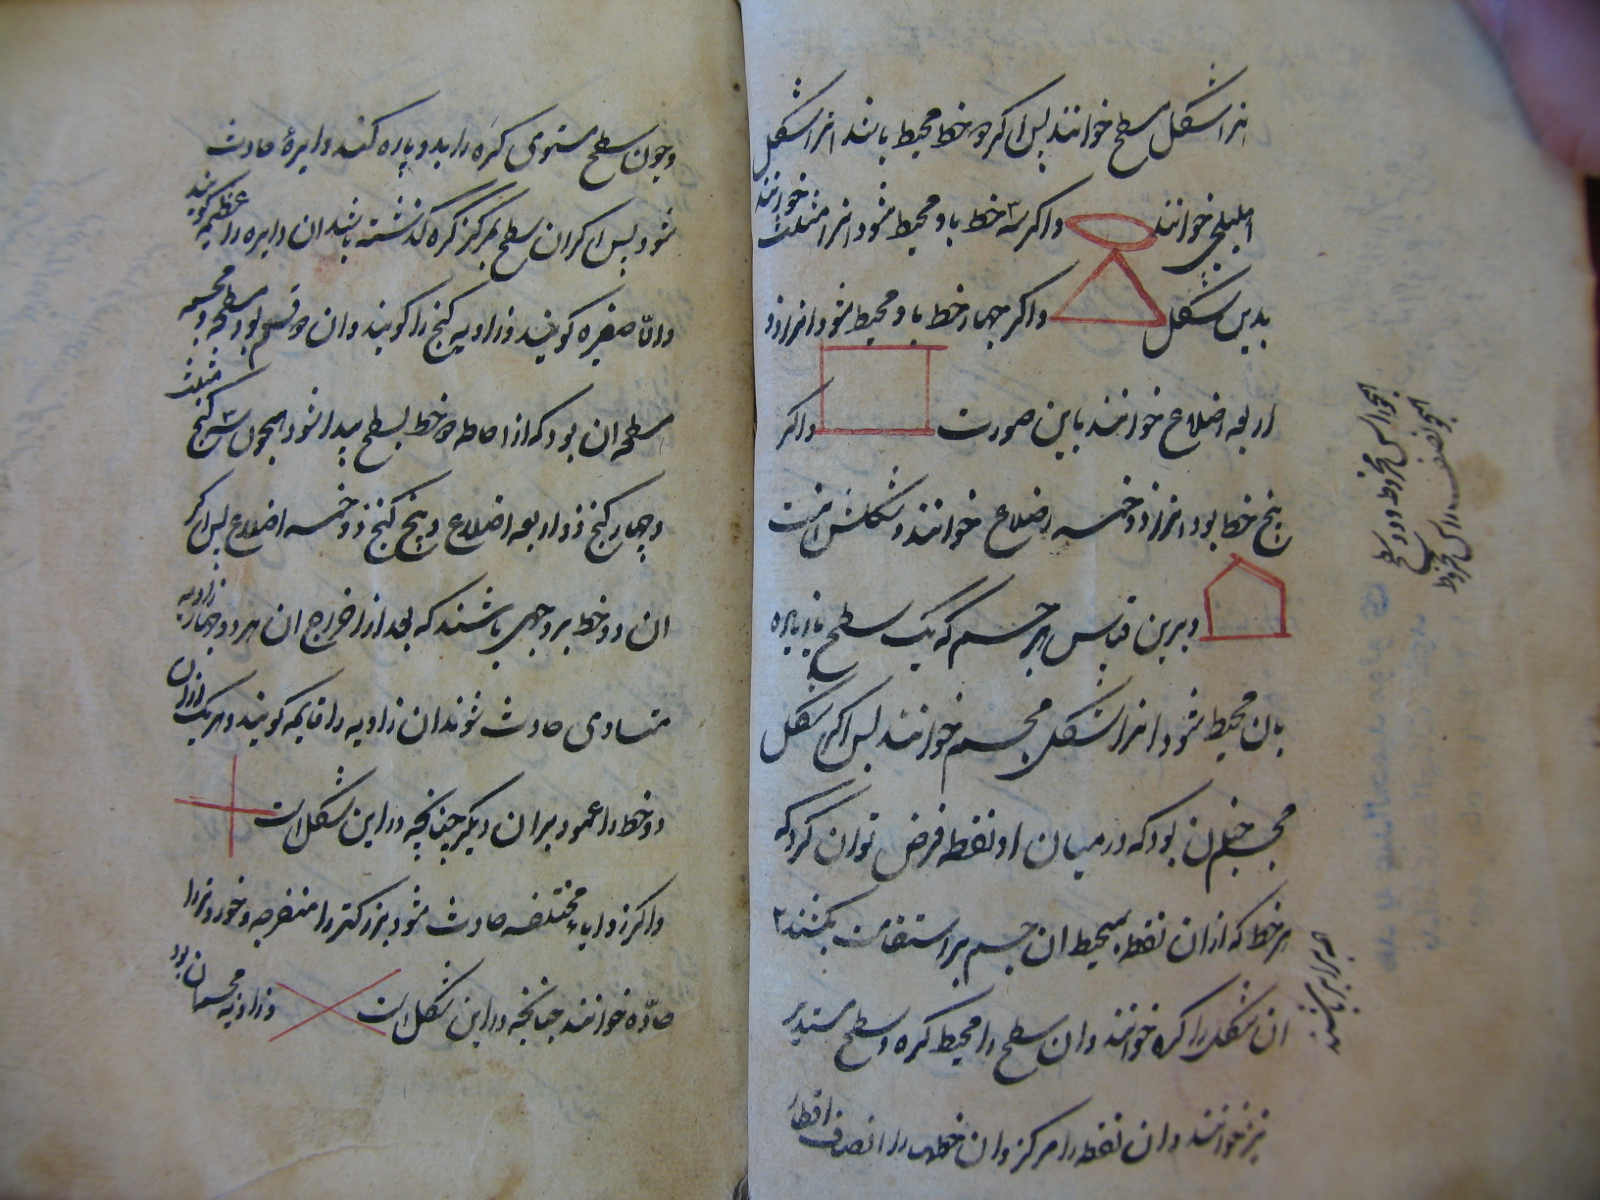 انرا شکل سطح خوانند پس اکر دو خط محیط باشد انرا شکل
اهلیلجی خوانند واکر سه خط باو محیط شود انرا مثلث خوانند
بدین شکل واکر چهار خط باو محیط شود انرا ذو
اربعه اضلاع خوانند باین صورت واکر
پنج خط بود انرا ذو خمسه اضلاع خوانند و شکلش اینست
وبرین قیاس هر جسم که یک سطح یا زیاده
بان محیط شود انرا شکل مجسم خوانند پس اکر شکل
مجسم چنان بود که در میان او نقطه فرض توان کرد که
هر خط که از ان نقطه بمحیط ان جسم بر استقامت بکشند
همه برابر باشند
ان شکل را کره خوانند وان سطح را محیط کره و سطح مستدیر
نیز خوانند وان نقطه را مرکز وان خطها را انصاف اقطار
همچو راس مخروط و دو سطح
همچو نصف راس مخروط
وچون سطح مستوی کره را بدو پاره کند دایرهٔ حادث
شود پس اکر ان سطح بمرکز کره کذشته باشد ان دایره را عظیمه کویند
والّا صغیره کویند وزاویه کنج را کویند وان دو قسم بود سطحه و مجسمه
سطحه ان بود که از احاطه دو خط بسطح پیدا شود همچون سه کنج مثلث
و چهار کنج ذو اربعه اضلاع و پنج کنج ذو خمسه اضلاع پس اکر
ان دو خط بر وجهی باشند که بعد از اخراج ان هر دو چهار زاویه
متساوی حادث شوند ان زاویه را قایمه کویند وهر یک ازان
دو خط را عمود بران دیکر چنانچه در این شکل است
واکر زوایاء مختلفه حادث شود بزرکتر را منفرجه و خوردتر را
حادّه خوانند چنانچه در این شکل است وزاویه مجسمه ان بود